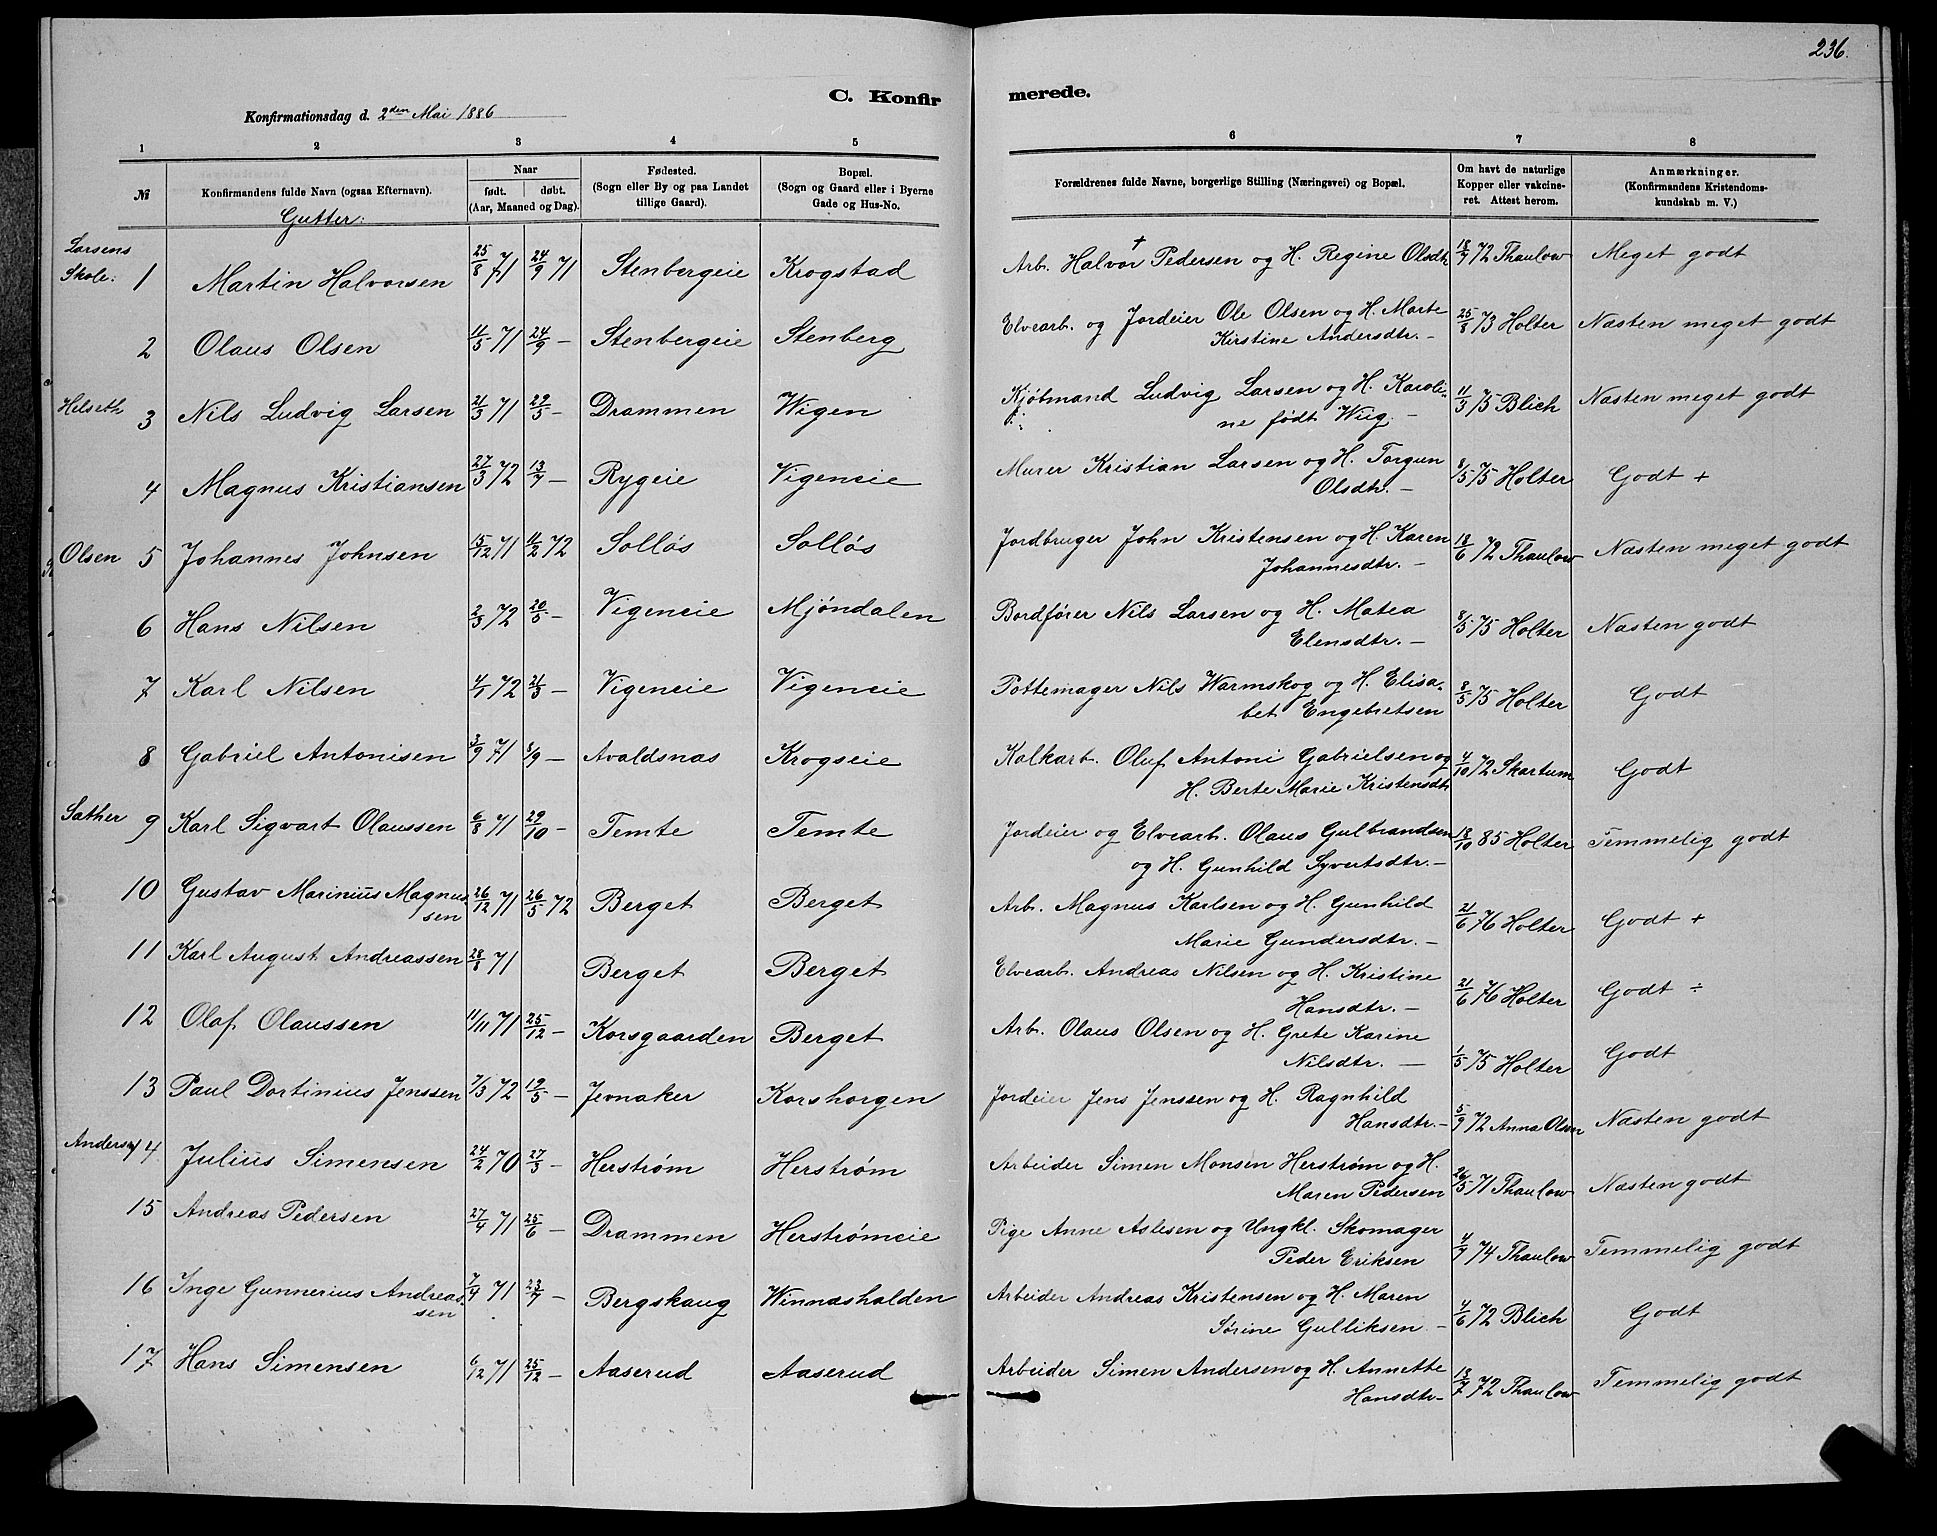 236.
C. Konfirmerede.
Konfirmationsdag d. 2den Mai 1886
1 2 3 4 5 6 7 8
№ Konfirmandens fulde Navn (ogsaa Efternavn). Naar født. døbt. (Aar, Maaned og Dag). Fødested. (Sogn eller By og paa Landet tillige Gaard). Bopæl. (Sogn og Gaard eller i Byerne Gade og Hus-No. Forældrenes fulde Navne, borgerlige Stilling (Næringsvei) og Bopæl. Om havt de naturlige Kopper eller vakcineret. Attest herom. Anmærkninger. (Konfirmandens Kristendomskundskab m. V.)
Gutter:
Larsens Skole: 1 Martin Halvorsen 25/8 71 24/9 71 Stenbergeie Krogstad Arb. Halvor + Pedersen og H. Regine Olsdtr. 18/7 72 Thaulow Meget godt
2 Olaus Olsen 11/5 71 24/9 – Stenbergeie Stenberg Elvearb. og Jordeier Ole Olsen og H. Marte
Kirstine Andersdtr. – 25/8 73 Holter Næsten meget godt
Helseth 3 Nils Ludvig Larsen 21/3 71 29/5 – Drammen Wigen Kjøbmand Ludvig Larsen og H. Karoli-
ne født Wiig. – 11/3 75 Blich Næsten meget godt
4 Magnus Kristiansen 27/3 72 13/7 – Rygeie Vigeneie Murer Kristian Larsen og H. Torgun
Olsdtr. – 8/5 75 Holter Godt +
Olsen 5 Johannes Johnsen 15/12 71 11/2 72 Solløs Solløs Jordbruger John Kristensen og H. Karen
Johannesdtr. – 18/6 72 Thaulow Næsten meget godt
6 Hans Nilsen 2/3 72 20/5 – Vigeneie Mjøndalen Bordfører Nils Larsen og H. Matea
Elensdtr. – 8/5 75 Holter Næsten godt
7 Karl Nilsen 4/1 72 21/3 – Vigeneie Vigeneie Pottemager Nils Warmskog og H. Elisa-
bet Engebretsen 8/5 75 Holter Godt
8 Gabriel Antonisen 3/9 71 8/9 – Avaldsnæs Krogseie Kalkarb. Oluf Antoni Gabrielsen og
H. Berte Marie Kristensdtr 4/10 72 Skartum Godt
Sæther 9 Karl Sigvart Olaussen 6/8 71 29/10 – Temte Temte Jordeier og Elvearb. Olaus Gulbrandsen
og H. Gunhild Syvertsdtr. – 18/10 85 Holter Temmelig godt
10 Gustav Marinius Magnus-
sen 26/12 71 26/5 72 Berget Berget Arb. Magnus Karlsen og H. Gunhild
Marie Gundersdtr. – 21/6 76 Holter Godt +
11 Karl August Andreassen 28/8 71 Berget Berget Elvearb. Andreas Nilsen og H. Kristine
Hansdtr. – 21/6 76 Holter Godt ÷
12 Olaf Olaussen 11/11 71 25/12 – Korsgaarden Berget Arb. Olaus Olsen og H. Grete Karine
Nilsdtr. – 1/5 75 Holter Godt
13 Paul Dortinius Jenssen 7/3 72 19/5 – Jevnaker Korshorgen Jordeier Jens Jenssen og H. Ragnhild
Hansdtr. – 5/9 72 Anna Olsen Næsten godt
Andersen 14 Julius Simensen 24/2 70 27/3 – Herstrøm Herstrøm Arbeider Simen Monsen Herstrøm og H.
Maren Pedersen 26/5 71 Thaulow Næsten godt
15 Andreas Pedersen 27/4 71 25/6 – Drammen Herstrømeie Pige Anne Aslesen og Ungkl. Skomager
Peder Eriksen 4/7 74 Thaulow Temmelig godt
16 Inge Gunnerius Andreas-
sen 7/4 71 23/7 – Bergskaug Winnæshalden Arbeider Andreas Kristensen og H. Maren
Sørine Gulliksen. – 4/6 72 Blich Godt
17 Hans Simensen 6/12 71 25/12 – Aaserud Aaserud Arbeider Simen Andersen og H. Annette
Hansdtr – 18/7 72 Thaulow Temmelig godt